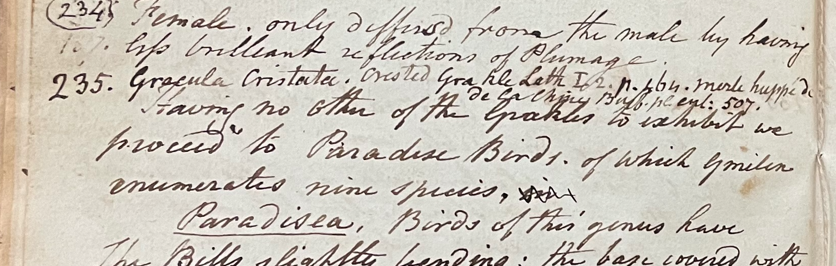 (234) Female. only differs from the male by having
less brilliant reflections of Plumage.
235. Gracula Cristata. Crested Grakle Lath. I. 2. p. 464. merle huppé de
de la Chine Buff. pl. enl: 507.
Having no other of the Grakles to exhibit we
proceed to Paradise Birds. of which Gmilen
enumerates nine species,
Paradisea. Birds of this genus have
The Bills slightly bending: the base covered with